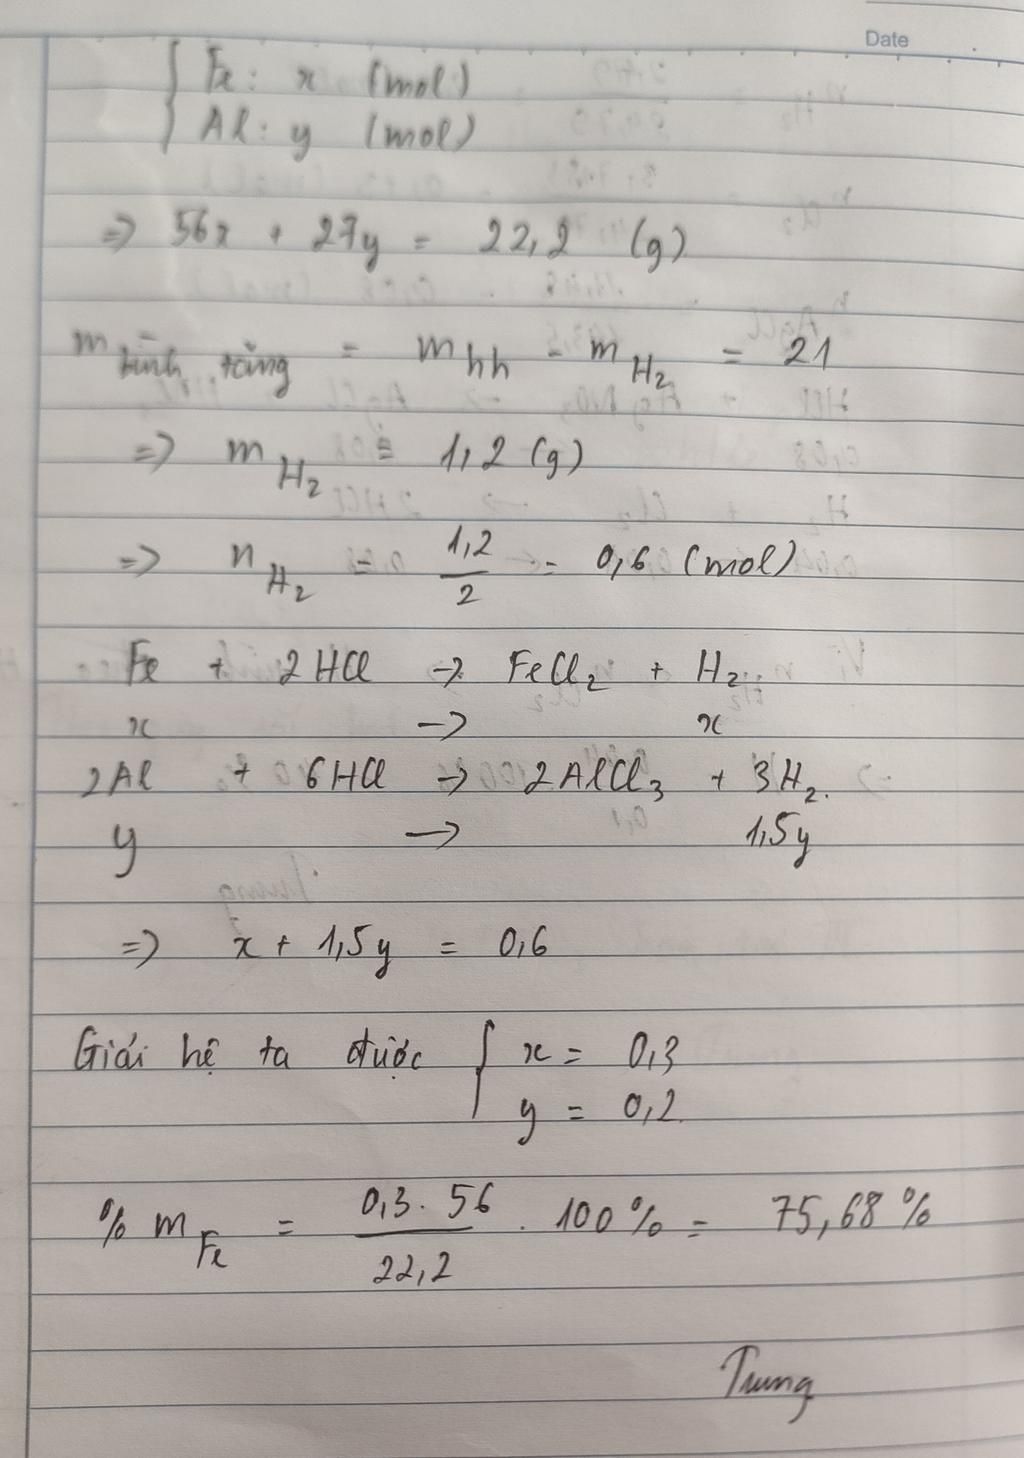 Date
{ Fe: x (mol)
Al: y (mol)
=> 56x + 27y = 22,2 (g)
m bình tăng = m hh - m H2 = 21
=> m H2 = 1,2 (g)
=> n H2 = 1,2/2 = 0,6 (mol)
Fe + 2HCl -> FeCl2 + H2
x -> x
2Al + 6HCl -> 2AlCl3 + 3H2.
y -> 1,5y
=> x + 1,5y = 0,6
Giải hệ ta được { x = 0,3
y = 0,2
% m Fe = 0,3 . 56 / 22,2 . 100% = 75,68%
Trung